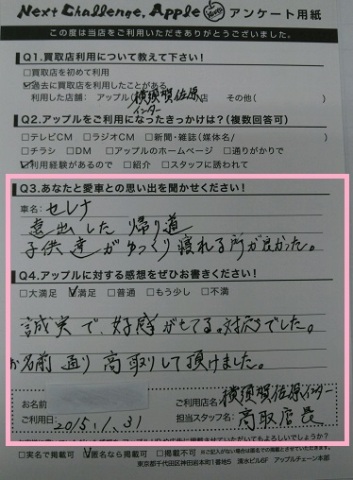 Next Challenge, Apple アンケート用紙
この度は当店をご利用いただきありがとうございました。
Q1.買取店利用について教えて下さい!
□買取店を初めて利用
☑過去に買取店を利用したことがある
利用した店舗: アップル(横須賀佐原インター店 その他( )
Q2.アップルをご利用になったきっかけは?(複数回答可)
□テレビCM □ラジオCM □新聞・雑誌(媒体名/ )
□チラシ □DM □アップルのホームページ □通りがかりで
☑利用経験があるので □紹介 □スタッフに誘われて
Q3.あなたと愛車との思い出を聞かせください!
車名:セレナ
遠出した帰り道
子供達がゆっくり寝れる所が良かった。
Q4.アップルに対する感想をぜひお書きください!
□大満足 ☑満足 □普通 □もう少し □不満
誠実で、好感がもてる。対応でした。
お名前通り高取りして頂けました。
お名前
ご利用店名 横須賀佐原インター
ご利用日 2015.1.31 担当スタッフ名: 高取店長
□実名で掲載可 ☑匿名なら掲載可 □掲載不可
東京都千代田区神田岩本町1番地5 清水ビル6F アップルチェーン本部